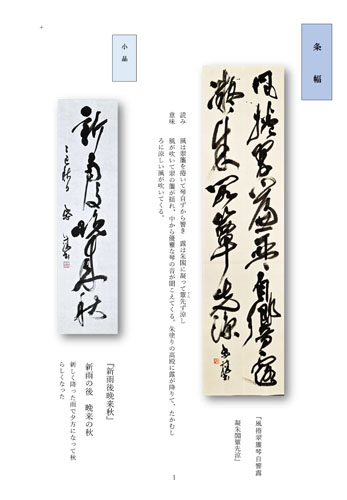 条幅
風捲翠簾琴自響露
凝朱閣簟先涼
「風捲翠簾琴自響露
凝朱閣簟先涼」
読み　風は翠簾を捲いて琴自ずから響き　露は朱閣に凝って簟先ず涼し
意味　風が吹いて翠の簾が揺れ、中から優雅な琴の音が聞こえてくる。朱塗りの高殿に露が降りて、たかむし
ろに涼しい風が吹いてくる。
小品
新雨後晩来秋
『新雨後晩来秋』
新雨の後　晩来の秋
新しく降った雨で夕方になって秋
らしくなった
1